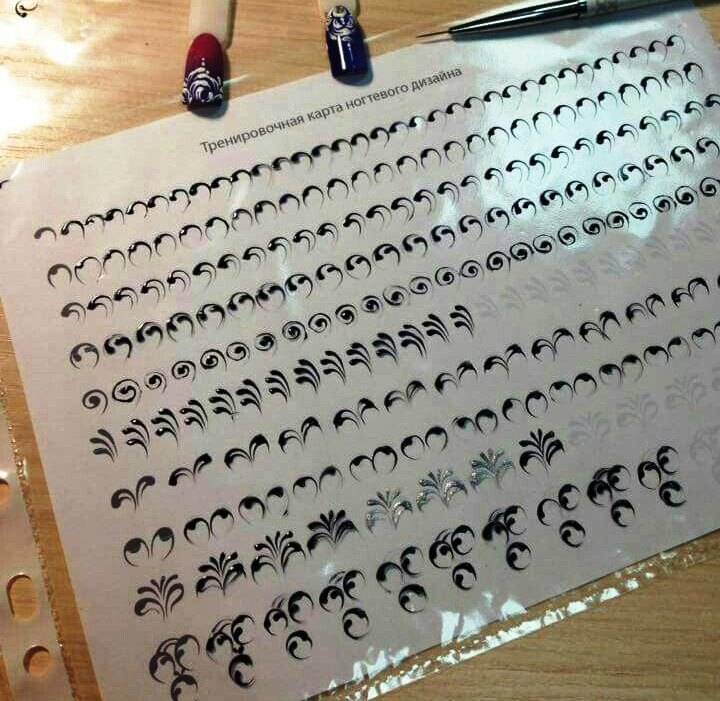 Тренировочная карта ногтевого дизайна